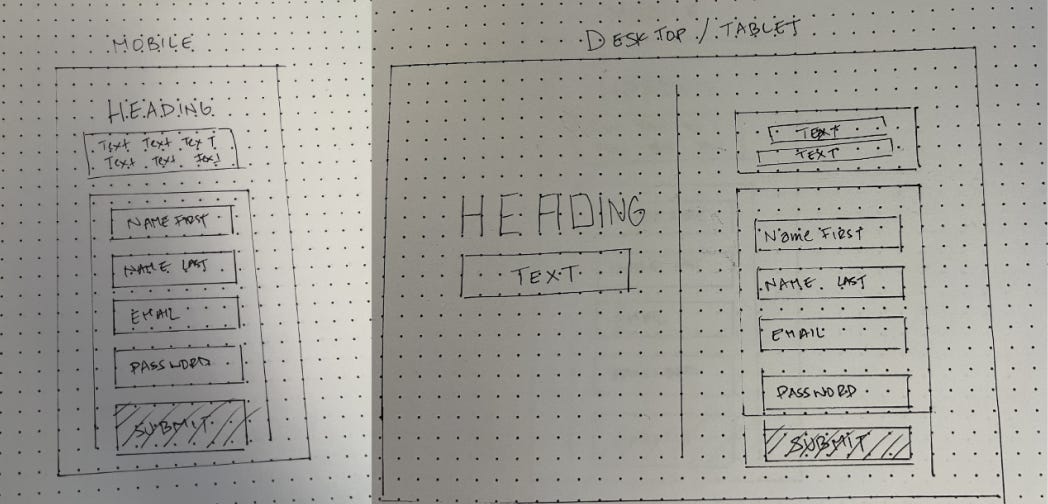 MOBILE
HEADING
Text Text Text
Text Text Text
NAME FIRST
NAME LAST
EMAIL
PASSWORD
SUBMIT
DESKTOP / TABLET
HEADING
TEXT
TEXT
TEXT
Name First
NAME LAST
EMAIL
PASSWORD
SUBMIT